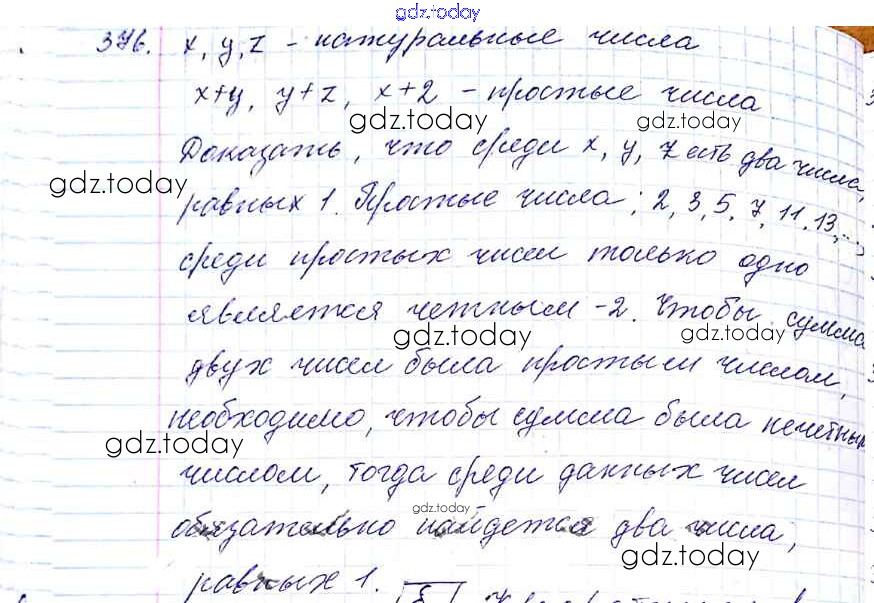 gdz.today
376. x, y, z - натуральные числа
x+y, y+z, x+z - простые числа
gdz.today gdz.today
Доказать, что среди x, y, z есть два числа,
gdz.today
равных 1. Простые числа: 2, 3, 5, 7, 11, 13, ...,
среди простых чисел только одно
является четным -2. Чтобы сумма
gdz.today gdz.today
двух чисел была простым числом,
необходимо, чтобы сумма была нечетным
gdz.today
числом, тогда среди данных чисел
gdz.today
обязательно найдется два числа,
gdz.today
равных 1.